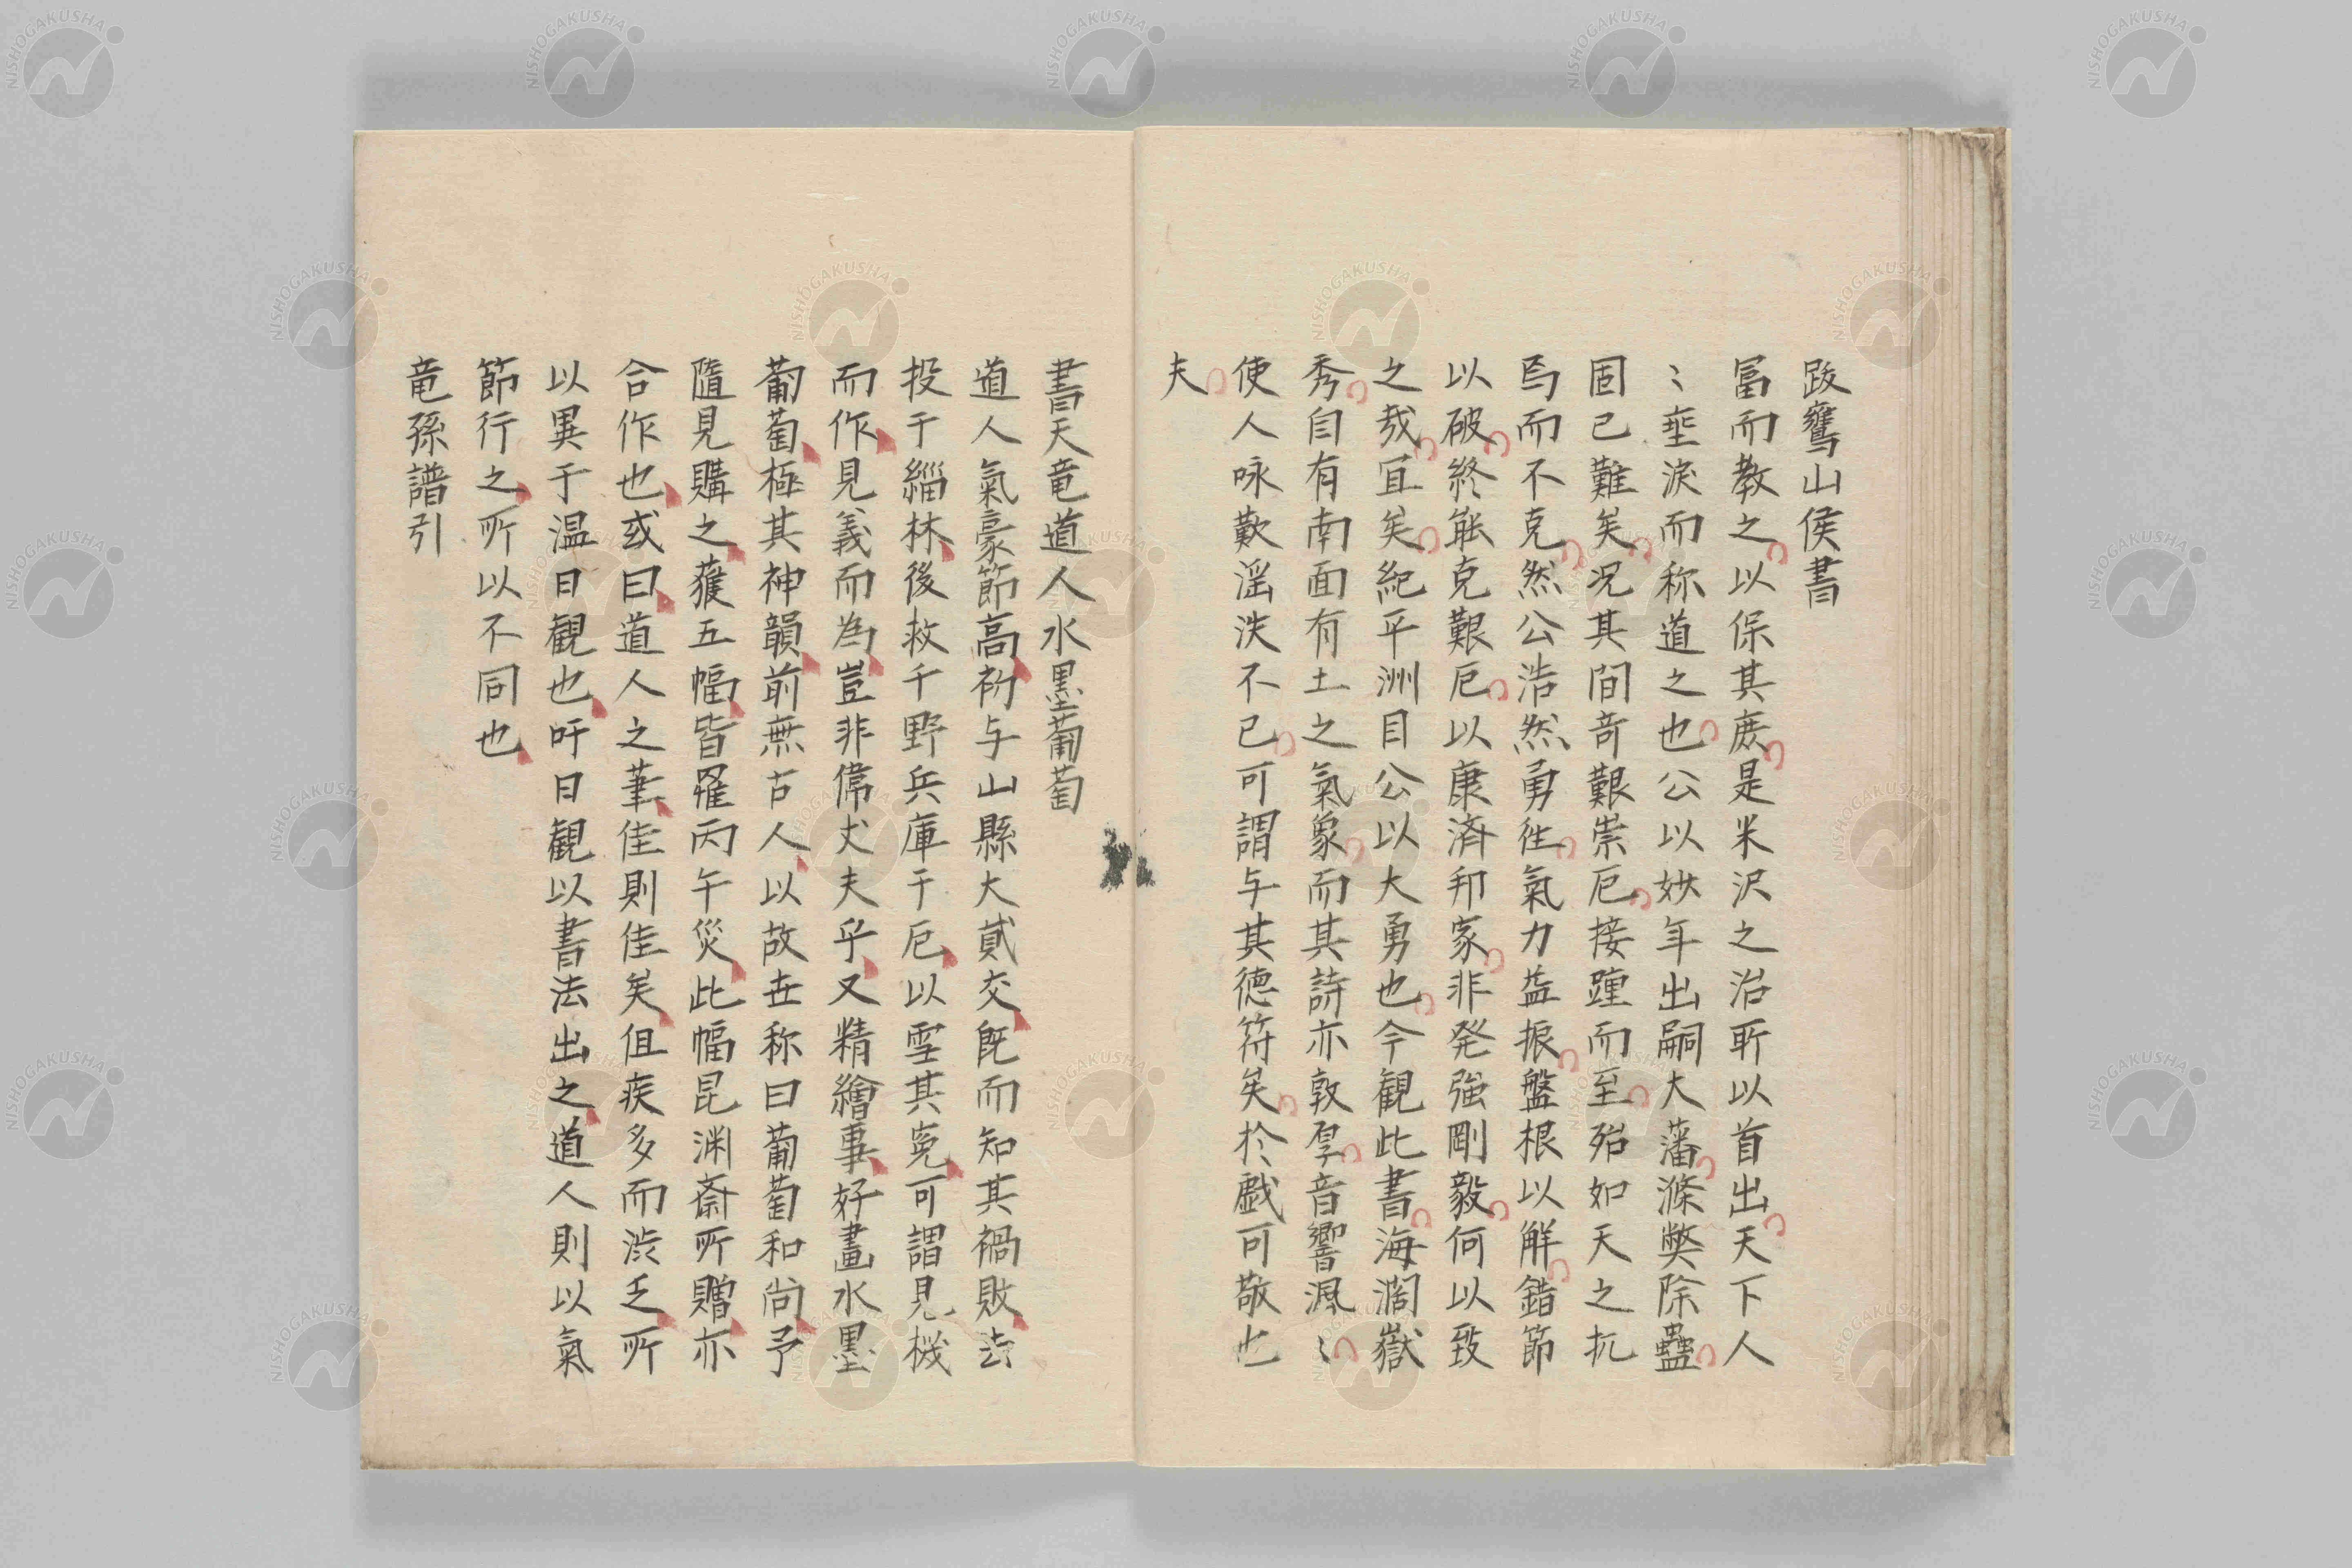 跋鷹山侯書
冨而教之以保其庶是米沢之治所以首出天下人
〻埀淚而称道之也公以妙年出嗣大藩滌弊除蠱
固已難矣况其間竒艱崇厄接踵而至殆如天之扤
焉而不克然公浩然勇徃氣力益振盤根以觧錯節
以破終能克艱厄以康済邦家非発強剛毅何以致
之哉宜矣紀平洲目公以大勇也今観此書海濶嶽
秀自有南面有土之氣象而其詩亦敦厚音響渢〻
使人咏歎滛泆不已可謂与其徳符矣於戯可敬也
夫
書天竜道人水墨葡萄
道人氣豪節高初与山縣大貳交既而知其禍敗去
投于緇林後救千野兵庫于厄以雪其寃可謂見機
而作見義而為豈非偉丈夫乎又精繪事好畫水墨
葡萄極其神韻前無古人以故世称曰葡萄和尚予
隨見購之獲五幅皆罹丙午災此幅昆渊斎所贈亦
合作也或曰道人之筆佳則佳矣伹疾多而渋乏所
以異于温日観也吁日観以書法出之道人則以氣
節行之所以不同也
竜孫譜引
NISHOGAKUSHA